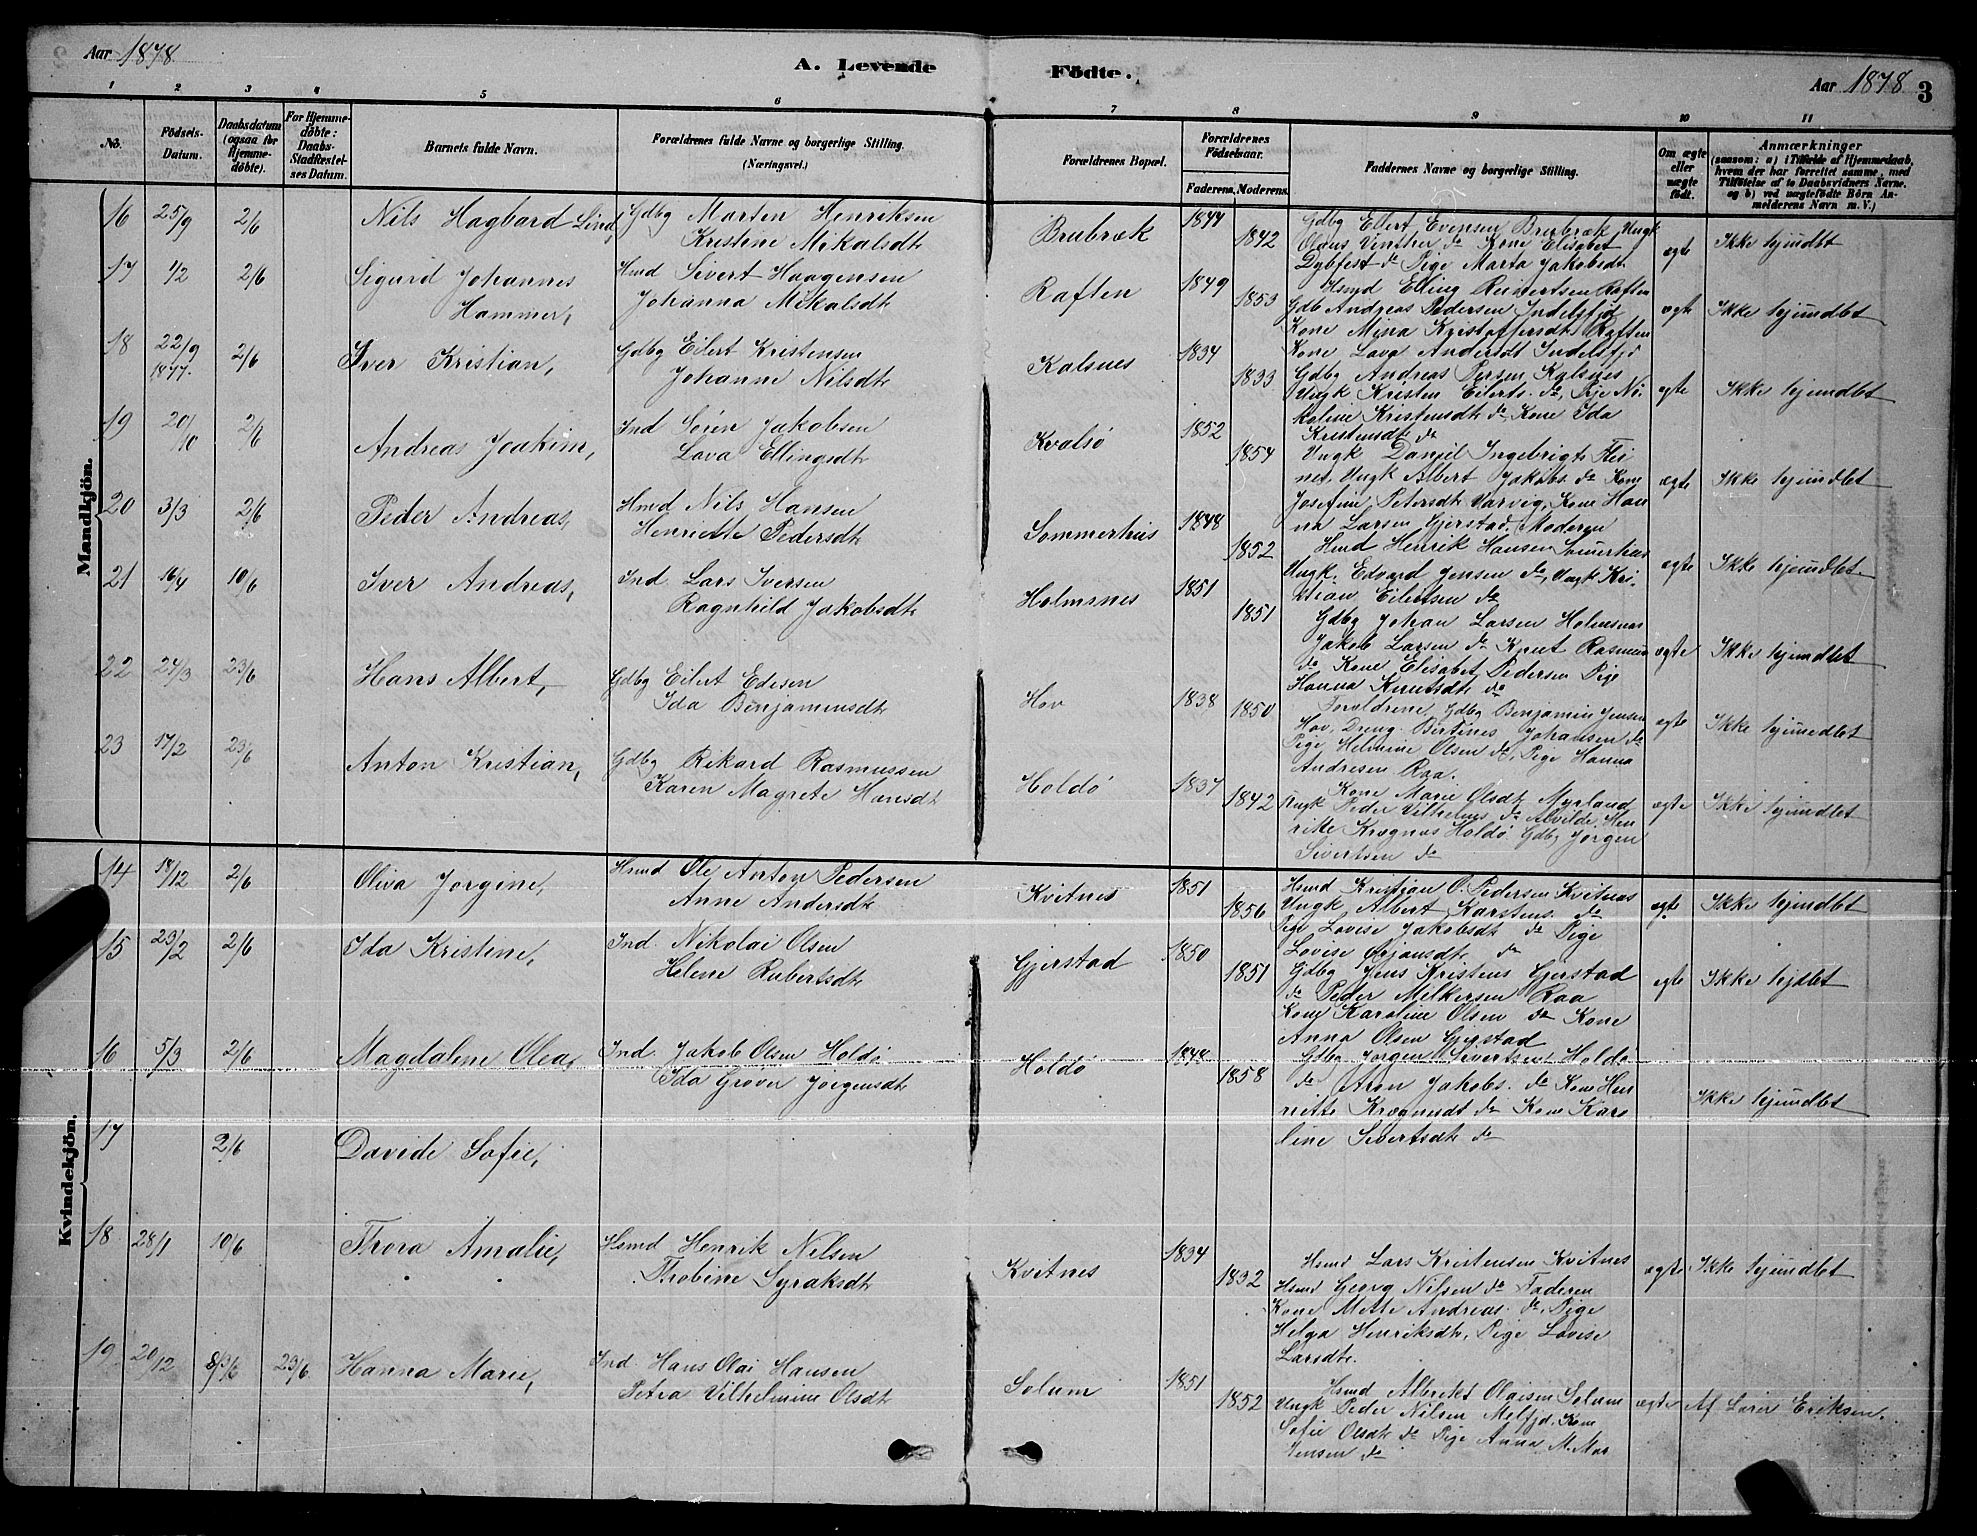 Aar 1878
A. Levende Födte.
Aar 1878. 3
1 2 3 4 5 6 7 8 9 10 11
No. Födsels-Datum. Daabsdatum (ogsaa for Hjemmedöbte). For Hjemmedöbte: Daabs-Stadfæstelses Datum. Barnets fulde Navn. Forældrenes fulde Navne og borgerlige Stilling. (Næringsvei.) Forældrenes Bopæl. Forældrenes Födselsaar. Faderens. Moderens. Faddernes Navne og borgerlige Stilling. Om ægte eller uægte födt. Anmærkninger (saasom: a) i Tilfælde af Hjemmedaab, hvem der har forrettet samme, med Tilföielse af to Daabsvidners Navne. og b) ved uægtefödte Börn Anmelderens Navn m. V.)
Mandkjön.
16 25/9 2/6 Nils Hagbard Lind, Gdbg Marten Henriksen
Kristine Mikalsdt Brubræk 1844 1842
Gdbg Eilert Evensen Brubræk, Ungk
Olaus Vinther do Kone Elisabet
Dybfest do Pige Marta Jakobsdt
ægte Ikke hjemdbt
17 1/2 2/6 Sigurd Johannes Hammer, Hmd Sivert Haagensen
Johanna Mikalsdt Raften 1849 1853
Hsmd Elling Reinertsen Raften
Gdb Andreas Pedersen Indelsfjd
Kone Mina Kristoffersdt Raften
Kone Lava Andersdt Indelsfjd
ægte Ikke hjemdbt
18 22/9 1877. 2/6 Iver Kristian, Gdbg Eilert Kristensen
Johanne Nilsdt Kalsnes 1834 1833
Gdbg Andreas Persen Kalsnes
Ungk Kristen Eilerts. do, Pige Ni-
koline Kristensdt do Kone Ida
Kristensdt do
egte Ikke hjemdbet
19 20/10 2/6 Andreas Joakim, Ind Sören Jakobsen
Lava Ellingsdt Kvalsö 1852 1854
Ungk Danjel Ingebrigts
Ungk Albert Jakobs. do Kone
Josefine Petersdt Varvig, Kone Han
na Larsen Gjerstad. Moderen
ægte Ikke hjemdbet
20 3/3 2/6 Peder Andreas, Hmd Nils Hansen
Henriette Pedersdt Sommerhus 1848 1852
Hmd Henrik Hansen Somerhus
Ungk. Edvard Jensen do, Ungk Kri-
stian Eilertsen do
ægte Ikke hjemdbet.
21 16/4 10/6 Iver Andreas, Ind. Lars Iversen
Ragnhild Jakobsdt Holmsnes 1851 1851
Gdbg Johan Larsen Holmsnes
Jakob Larsen do Knut Rasmus
do Kone Elisabet Pedersen Pige
Hanna Knutsdt do
ægte Ikke hjemdbet
22 24/3 23/6 Hans Albert, Gdbg Eilert Edisen
Ida Benjaminsdt Hov 1838 1850
Foreldrene, Gdbg Benjamin Jensen
Hov, Dreng Bertines Johansen do
Pige Helmine Olsen do, Pige Hanna
Andresen Raa.
ægte Ikke hjemedbet
23 17/2 23/6 Anton Kristian, Gdbg Rikard Rasmussen
Karen Magrete Hansdt Holdö 1837 1842
Kone Marie Olsdt Myrland
Ungk Peder Vilhelms do Alvilde Hen
rikke Krognes Holdö Gdbg Jörgen
Sivertsen do
ægte Ikke hjemdbet
Kvindekjön.
14 18/12 2/6 Oliva Jorgine, Hsmd Ole Anton Pedersen
Anne Andersdt Kvitnes 1851 1856
Hsmd Kristian O. Pedersen Kvitnes
Ungk Albert Karstens. do
Pige Lovise Jakobsdt do Pige
Lovise do
ægte Ikke hjemdbet
15 23/2 2/6 Ida Kristine, Ind. Nikolai Olsen
Helene Rubertsdt Gjerstad 1850 1851
Gdbg Jens Kristens Gjerstad
do Peder Melkersen Raa
Kone Karoline Olsen do Kone
Anna Olsen Gjerstad
egte Ikke hjdbet
16 5/3 2/6 Magdalene Olea, Ind. Jakob Olsen Holdö
Ida Gröver Jörgensdt Holdö 1848 1858
Gdbg Jörgen Sivertsen Holdö
do Aron Jakobs. do Kone Hen
riette Krognesdt do Kone Karo
line Sivertsdt do
Ikke hjemdbet
17 2/6 Davide Sofie,
18 28/1 10/6 Thora Amalie, Hsmd Henrik Nilsen
Thobine Syraksdt Kvitnes 1834 1832
Hsmd Lars Kristensen Kvitnes
Hsmd Georg Nilsen do Faderen
Kone Mette Andreas. do, Pige
Helga Henriksdt, Pige Lovise
Larsdt.
ægte Ikke hjemdbet
19 20/12 8/3 23/6 Hanna Marie, Ind. Hans Olai Hansen
Petra Vilhelmine Olsdt Solum 1851 1852
Hsmd Albrikt Olaisen Solum
Ungk Peder Nilsen Melfjd. Kone
Sofie Olsdt do Pige Anna M. Mor
tensen do
ægte Af Lærer Eriksen.